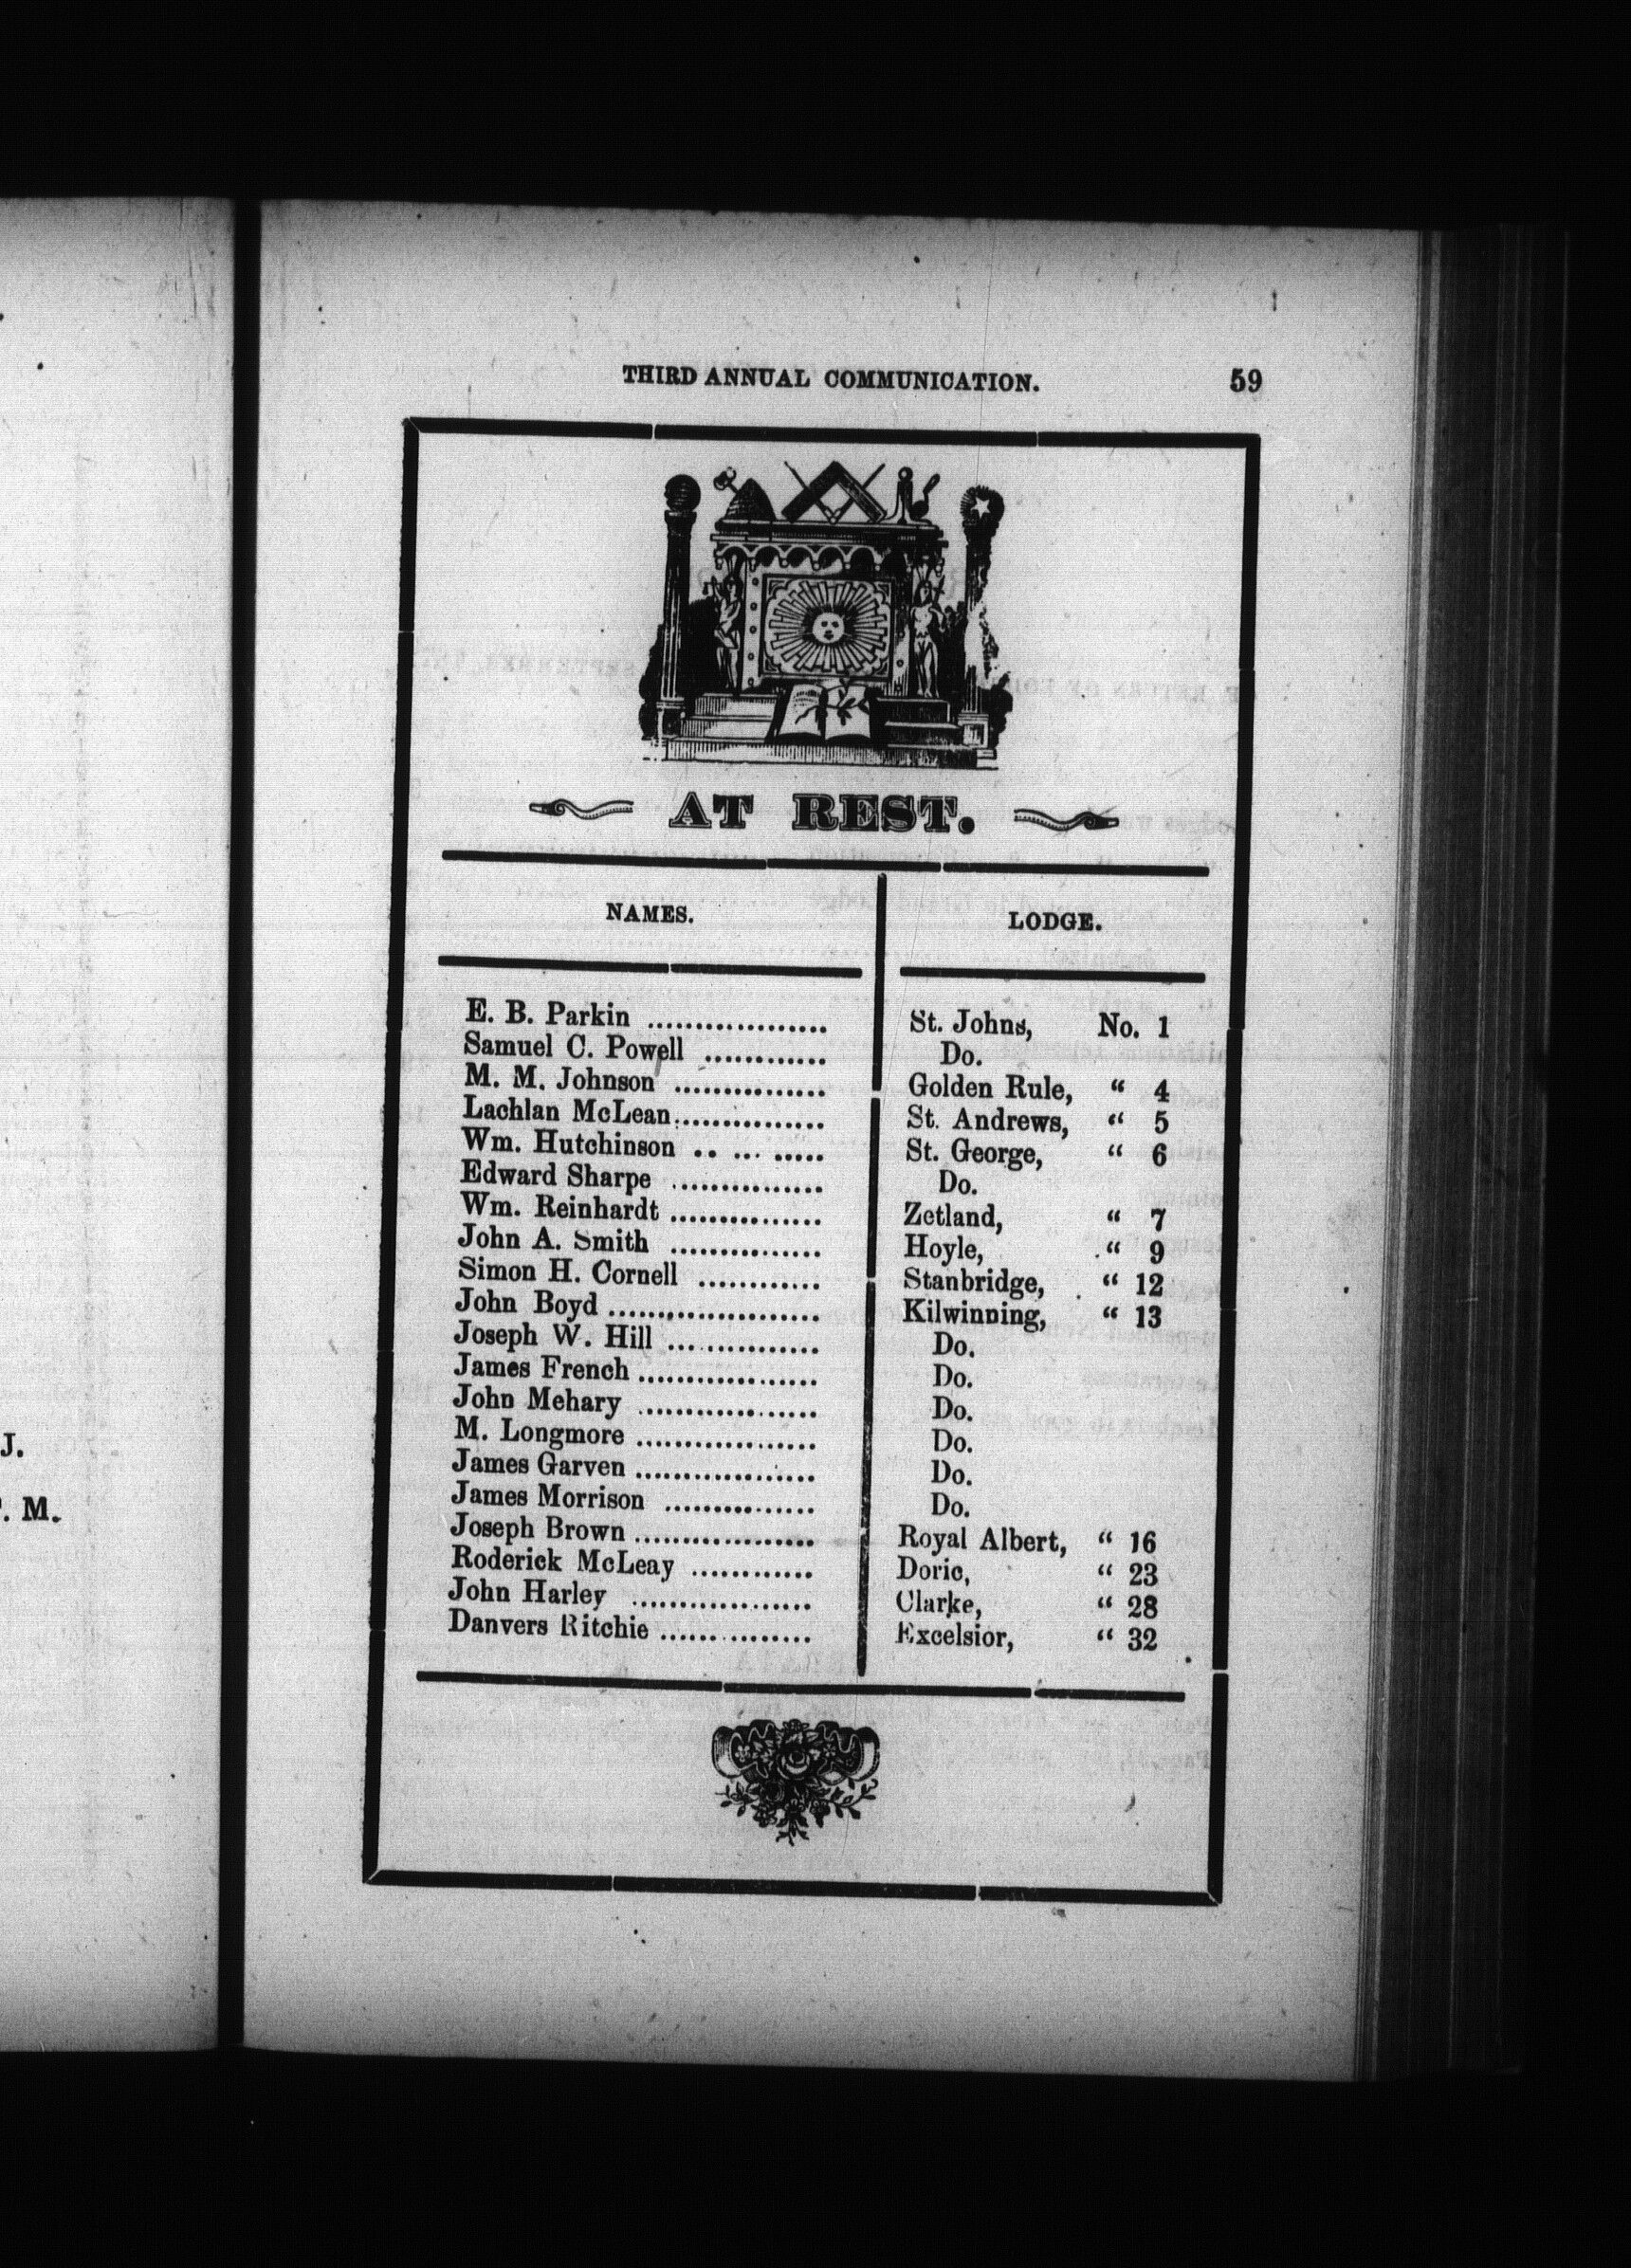 THIRD ANNUAL COMMUNICATION. 59
AT REST.
NAMES. LODGE.
E. B. Parkin ................... St. Johns, No. 1
Samuel C. Powell ............ Do.
M. M. Johnson ............... Golden Rule, “ 4
Lachlan McLean................ St. Andrews, “ 5
Wm. Hutchinson .. ... ..... St. George, “ 6
Edward Sharpe ................ Do.
Wm. Reinhardt ............... Zetland, “ 7
John A. Smith ............... Hoyle, “ 9
Simon H. Cornell ............ Stanbridge, “ 12
John Boyd ...................... Kilwinning, “ 13
Joseph W. Hill ................ Do.
James French .................. Do.
John Mehary .................. Do.
M. Longmore .................. Do.
James Garven .................. Do.
James Morrison ............... Do.
Joseph Brown .................. Royal Albert, “ 16
Roderick McLeay ............ Doric, “ 23
John Harley .................. Clarke, “ 28
Danvers Ritchie ............... Excelsior, “ 32
J.
. M.